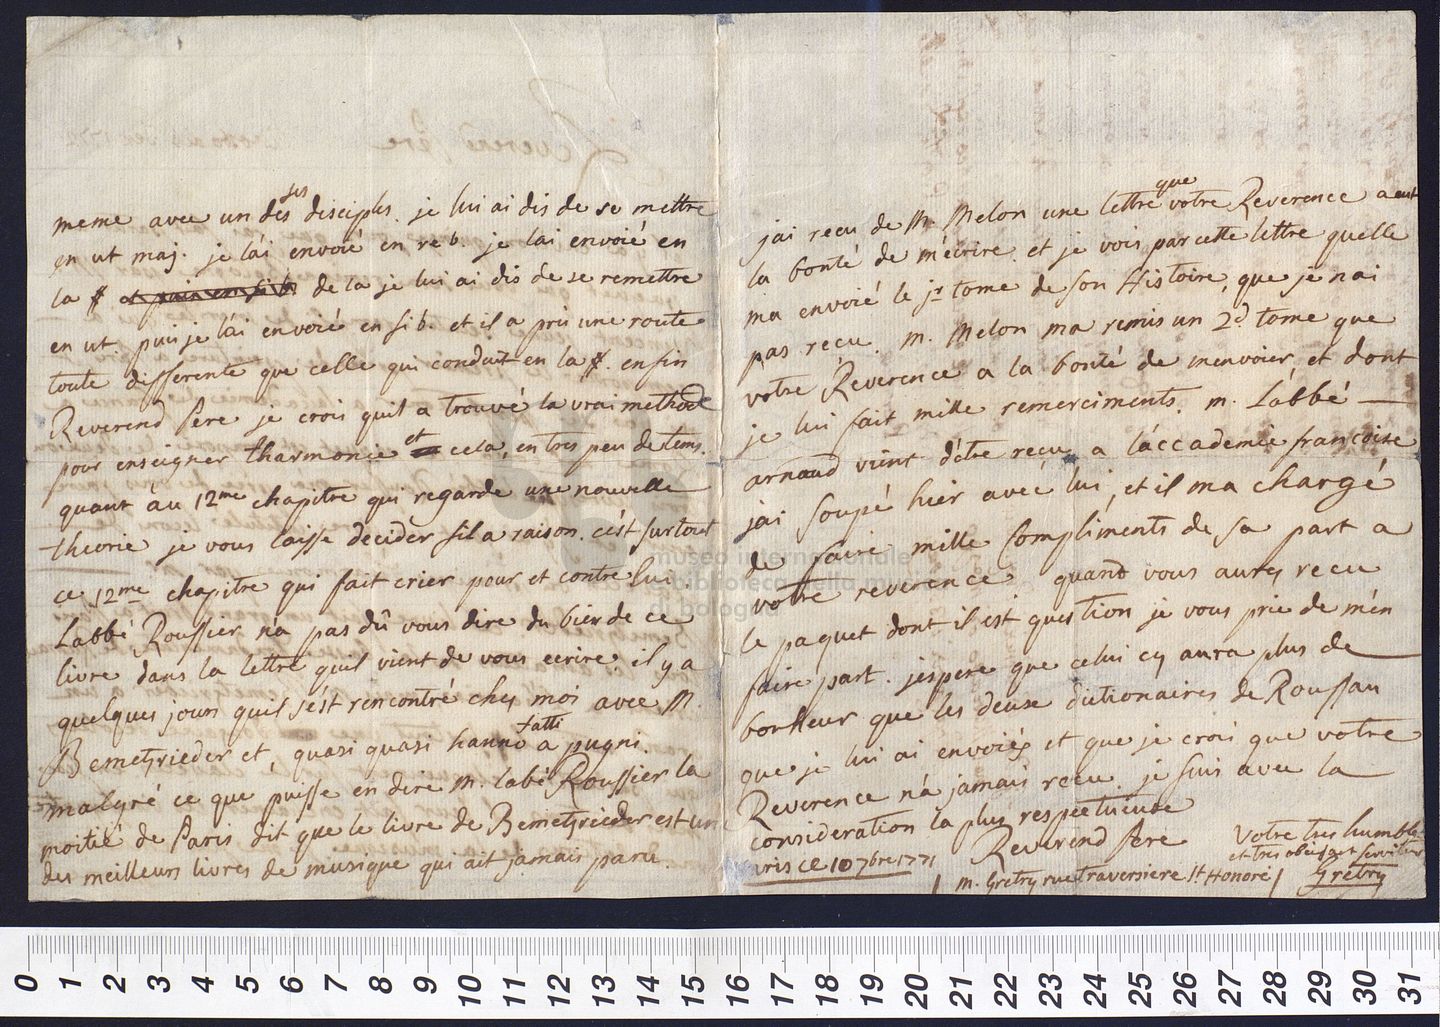 meme avec un des ses disciples. je lui ai dis de se mettre
en ut maj. je l'ai envoié en re b je l'ai envoié en
la # de la je lui ai dis de se remettre
en ut puis je l'ai envoié en si b. et il a pris une route
toute differente que celle qui conduit en la #. enfin
Reverend Pere je crois qu'il a trouvé la vrai methode
pour enseigner l'harmonie et cela, en tres peu de tems.
quant au 12me chapitre qui regarde une nouvelle
theorie je vous laisse decider s'il a raison. c'est surtout
ce 12me chapitre qui fait crier pour et contre lui.
L'abbé Roussier n'a pas dû vous dire du bien de ce
livre dans la lettre qu'il vient de vous ecrire. il y a
quelques jours qu'il s'est rencontré chez moi avec M.
Bemetzrieder et, quasi quasi hanno fatti a pugni.
malgré ce que puisse en dire M. l'abé Roussier la
moitié de Paris dit que le livre de Bemetzrieder est un
des meilleurs livres de musique qui ait jamais paru.
j'ai recu de M. Melon une lettre que votre Reverence a eut
la bonté de m'ecrire. et je vois par cette lettre qu'elle
m'a envoié le jr tome de son Histoire, que je n'ai
pas recu. M. Melon m'a remis un 2d tome que
votre Reverence a la bonté de m'envoier, et dont
je lui fait mille remerciments. M. L'abbé
arnaud vient d'etre reçu a l'accademie françoise
j'ai soupé hier avec lui, et il m'a chargé
de faire mille compliments de sa part a
votre reverence quand vous aurez recu
le paquet dont il est question je vous prie de m'en
faire part. j'espere que celui cy aura plus de
bonheur que les deuse dictionaires de Roussau
que je lui ai envoiés et que je crois que votre
Reverence n'a jamais recu. je suis avec la
consideration la plus respectueuse
Reverend Pere
Votre tres humble
et tres obeissant serviteur
Gretry
ris ce 10 7bre 1771
M. Gretry rue traversiere St Honoré
museo internazionale
e biblioteca della m
di bologn
0 1 2 3 4 5 6 7 8 9 10 11 12 13 14 15 16 17 18 19 20 21 22 23 24 25 26 27 28 29 30 31